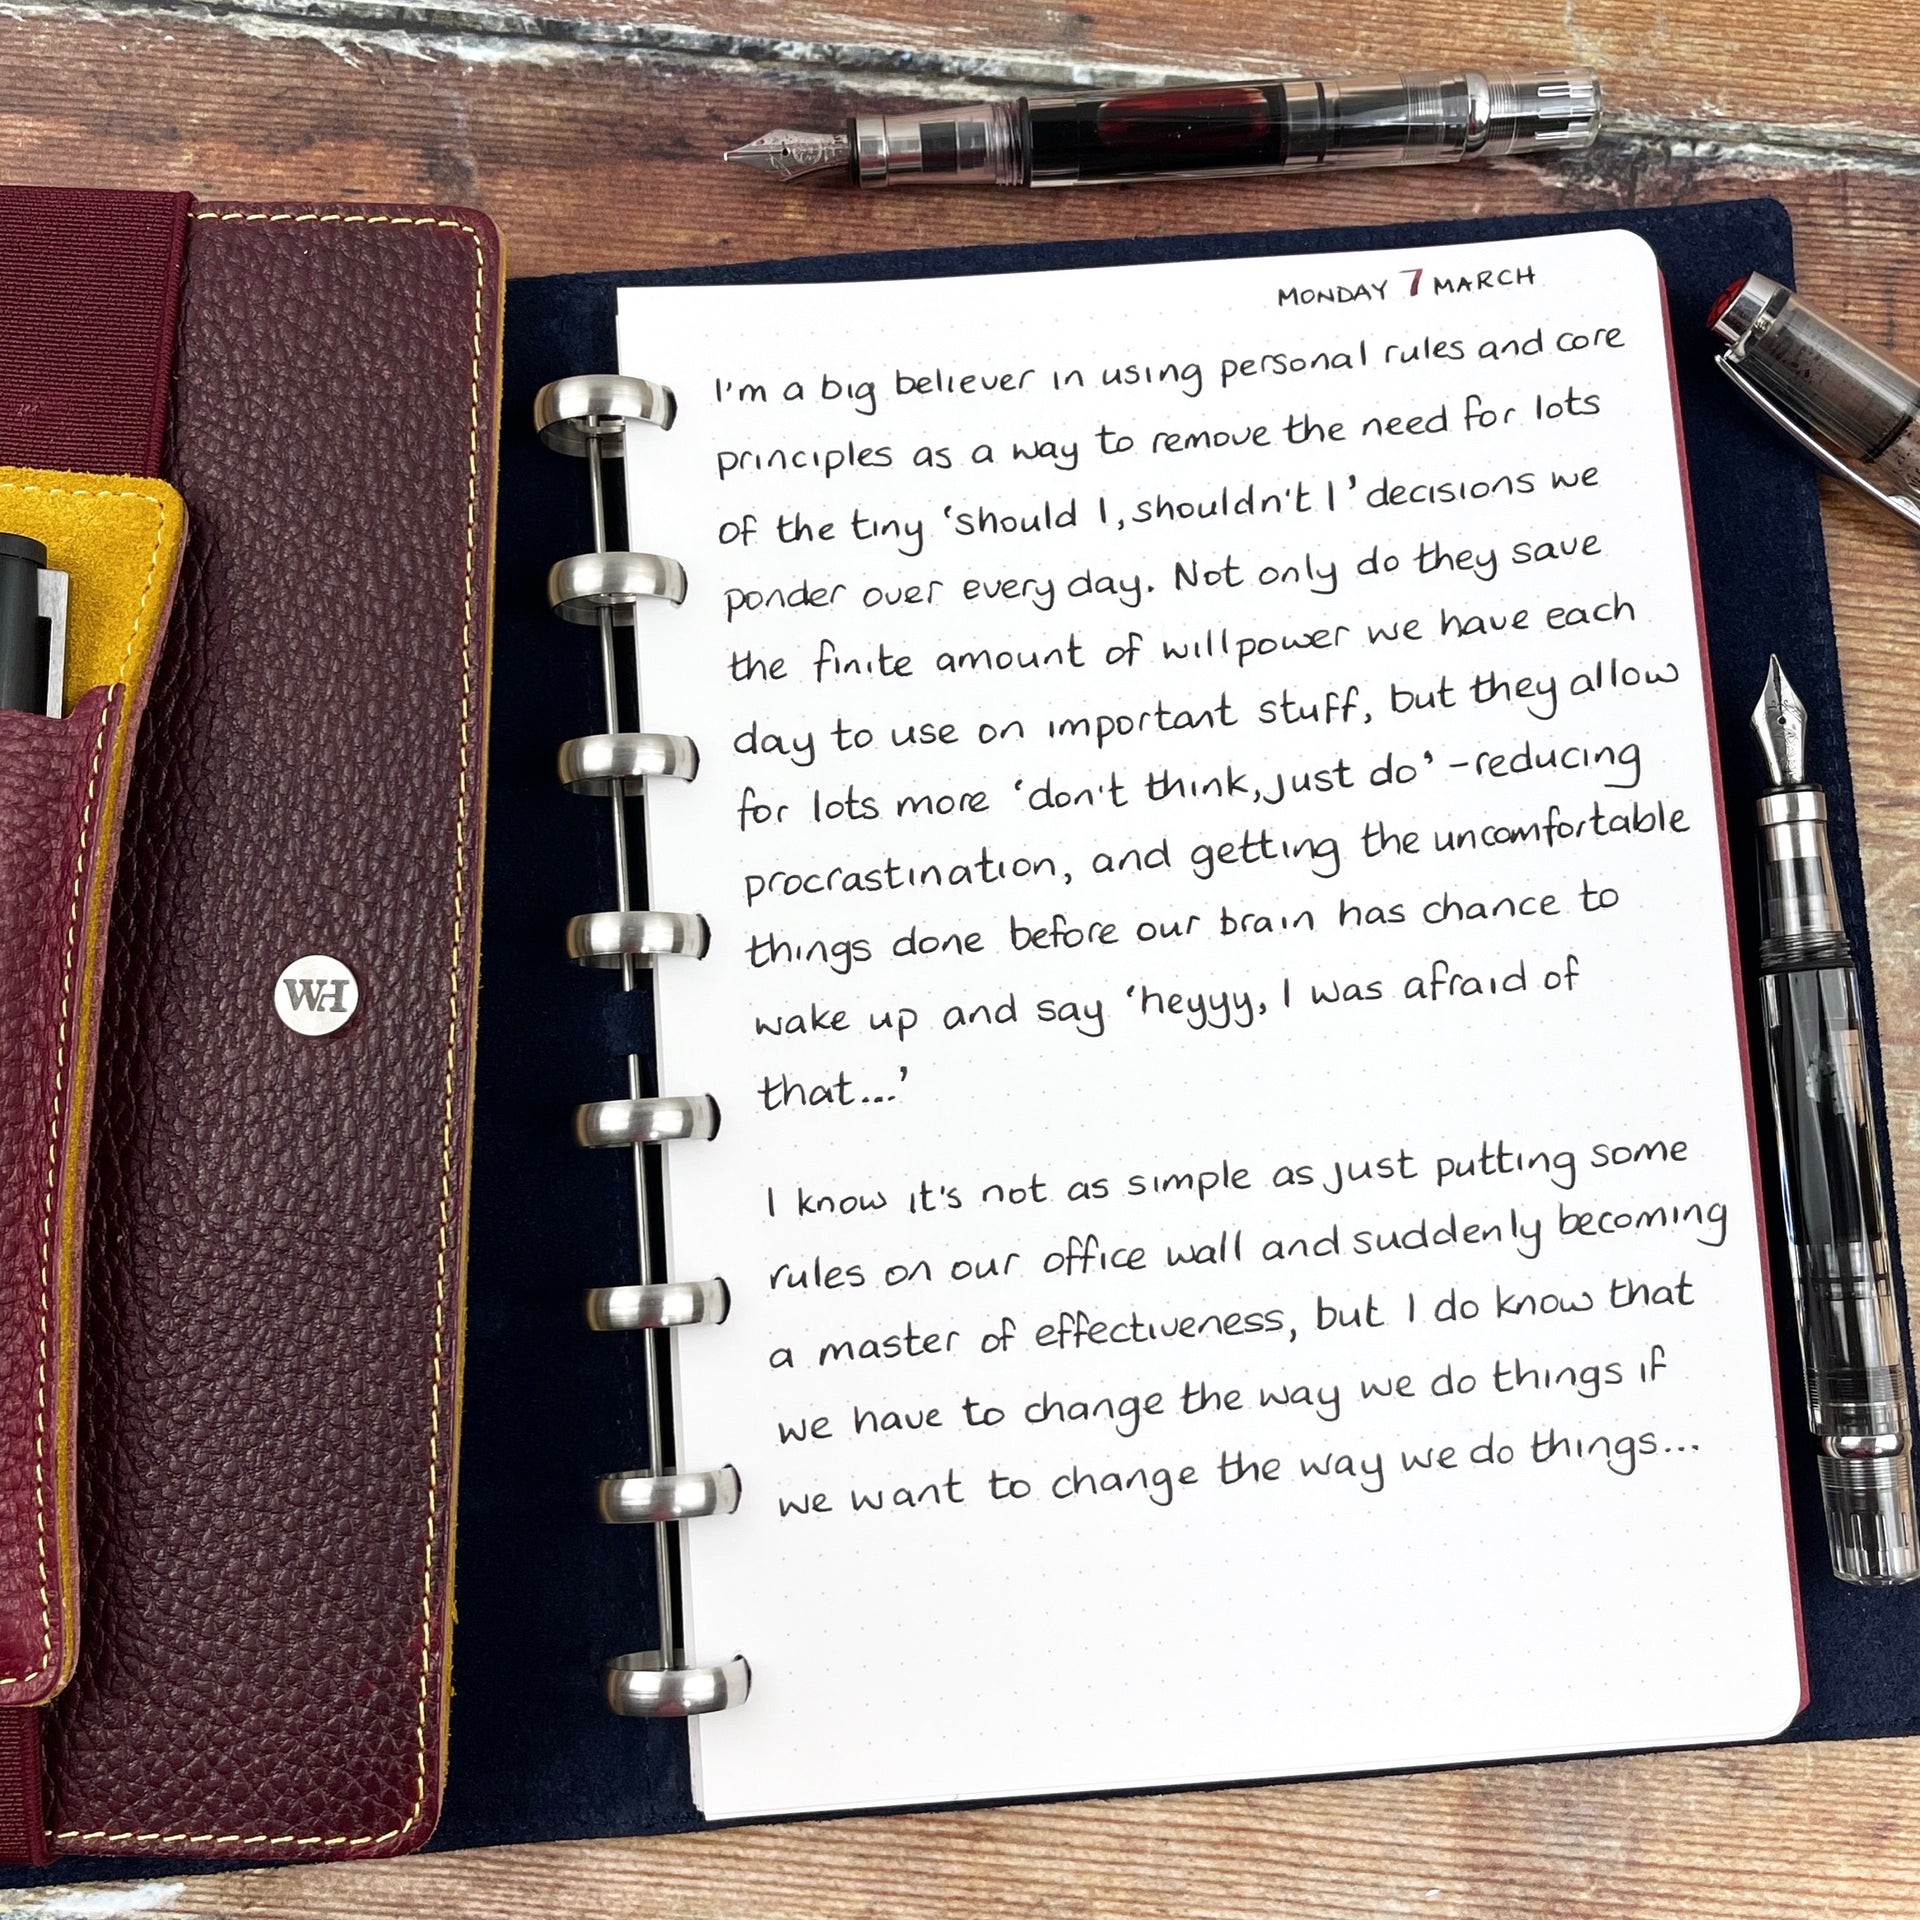 WH
MONDAY 7 MARCH
I'm a big believer in using personal rules and core
principles as a way to remove the need for lots
of the tiny 'should I, shouldn't I' decisions we
ponder over every day. Not only do they save
the finite amount of willpower we have each
day to use on important stuff, but they allow
for lots more 'don't think, just do' - reducing
procrastination, and getting the uncomfortable
things done before our brain has chance to
wake up and say 'heyyy, I was afraid of
that...'
I know it's not as simple as just putting some
rules on our office wall and suddenly becoming
a master of effectiveness, but I do know that
we have to change the way we do things if
we want to change the way we do things...